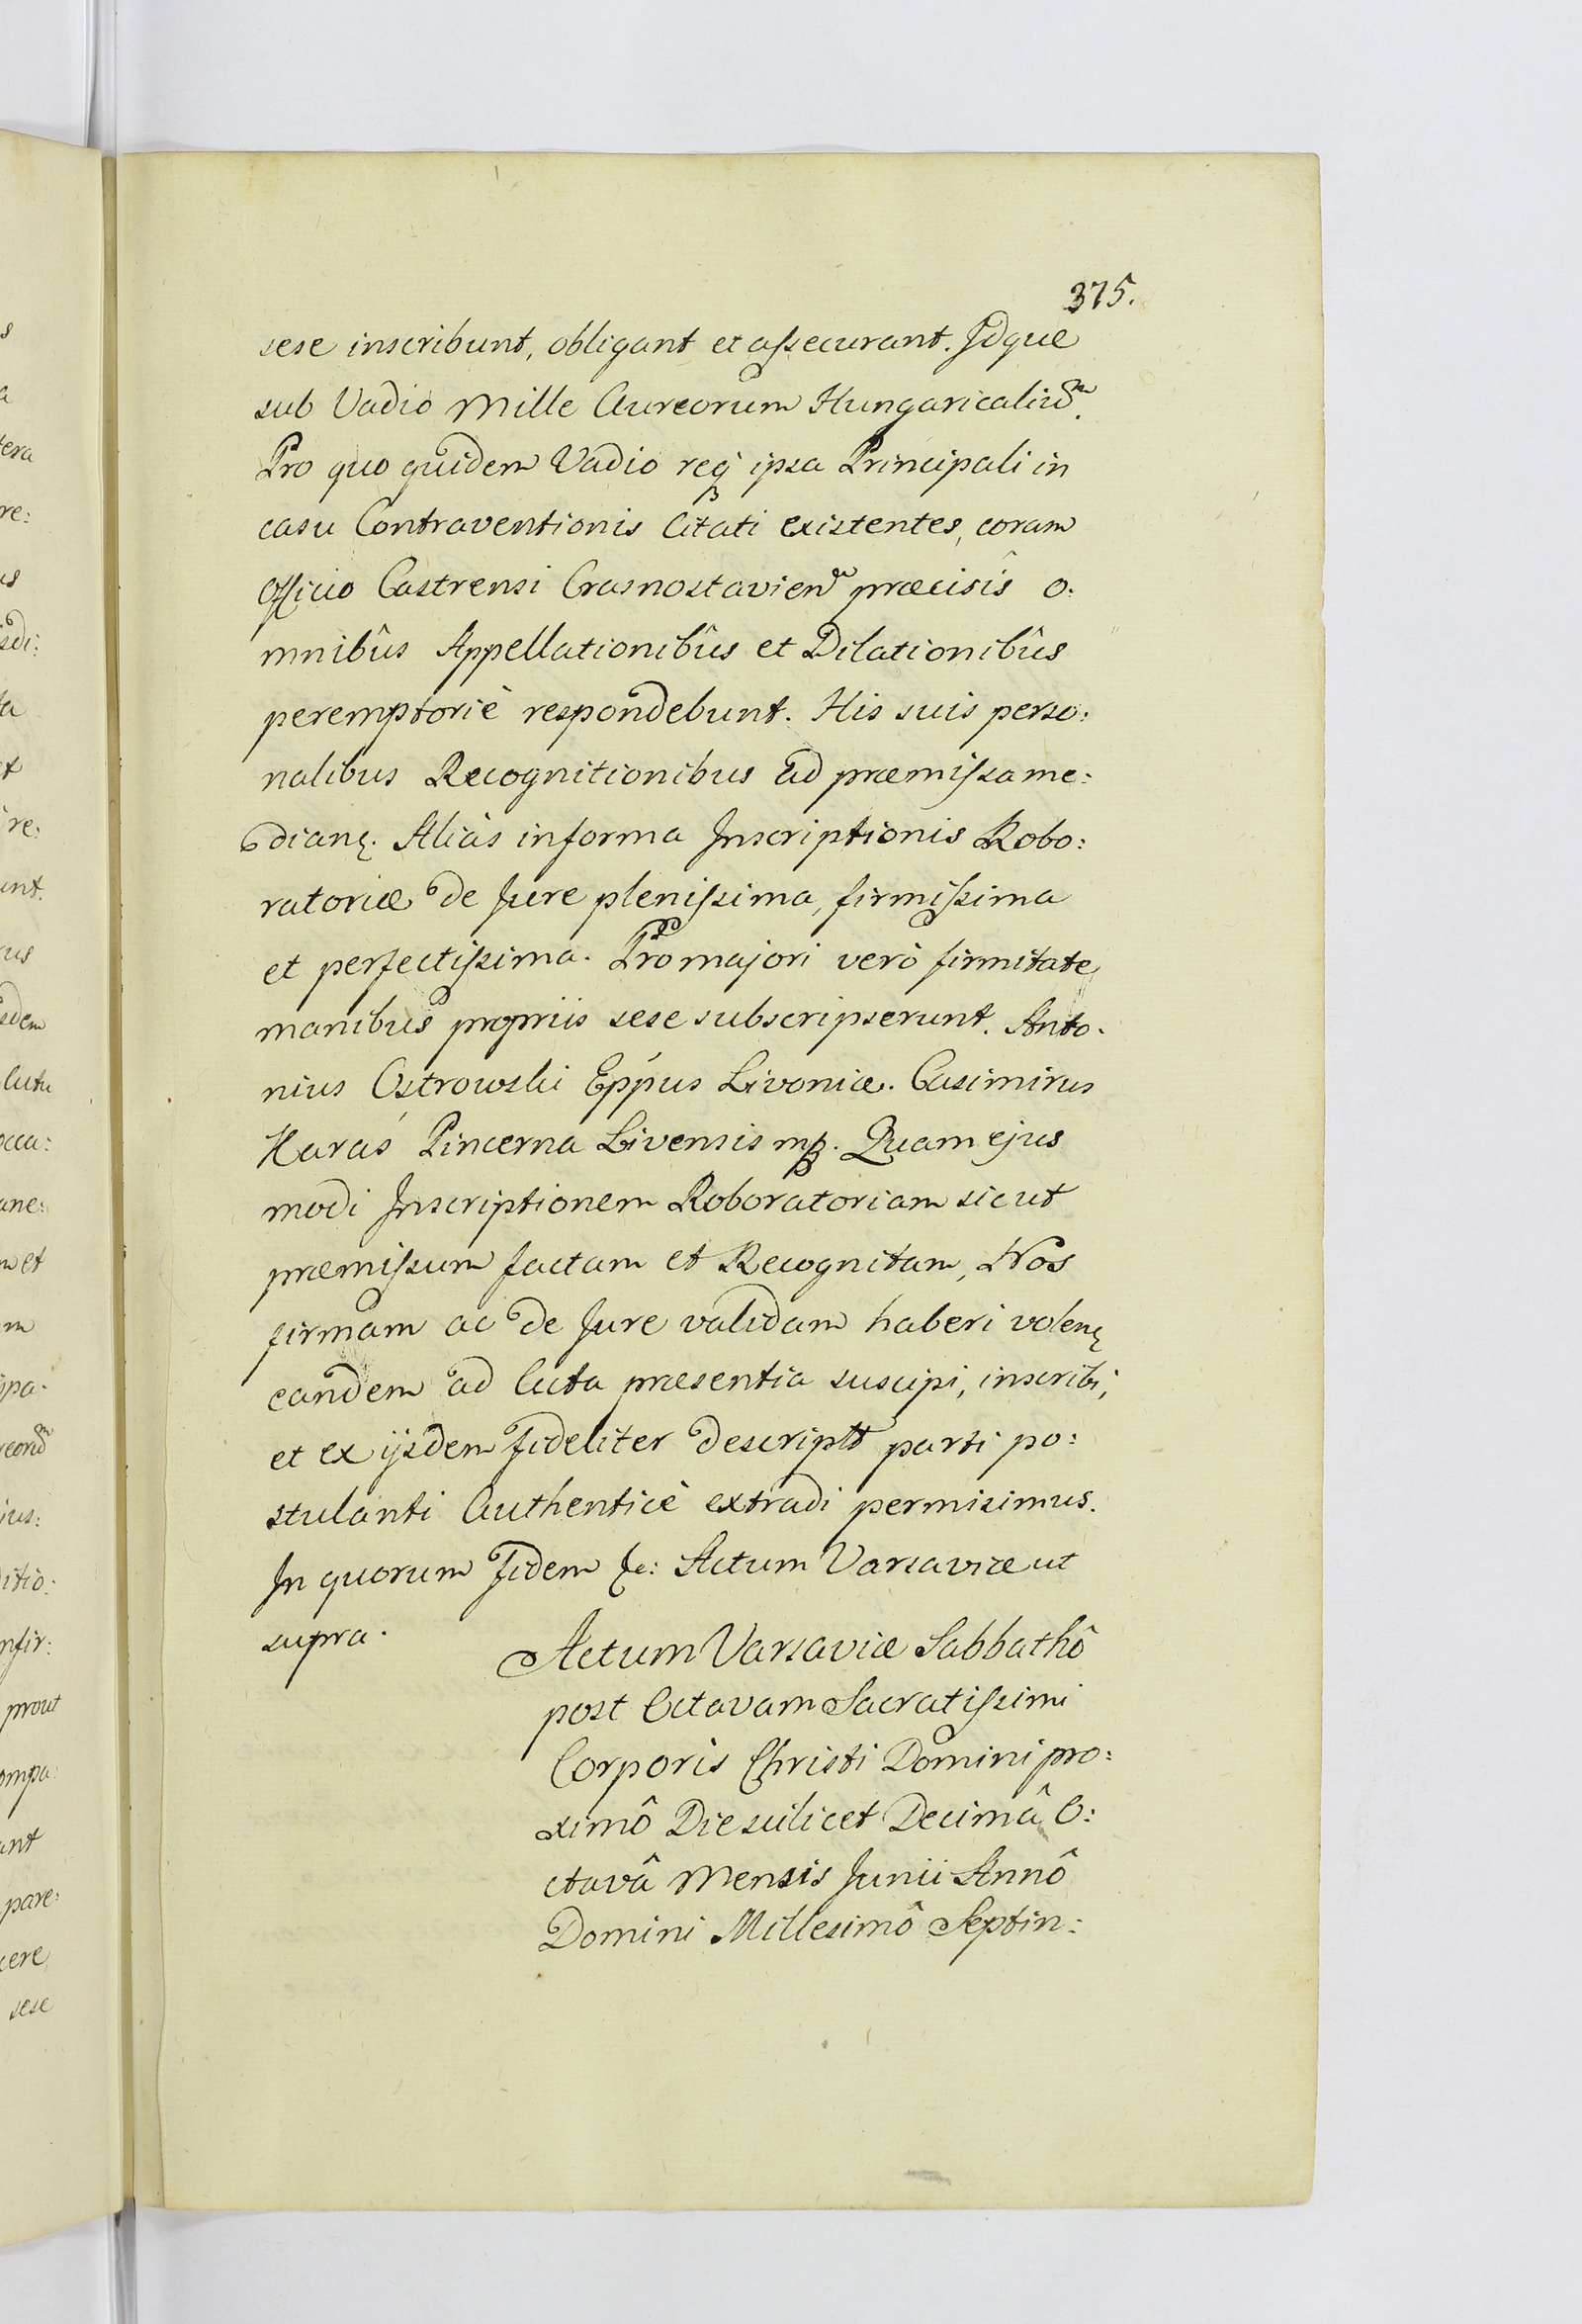 375.
sese inscribunt, obligant et assecurant. Idque
sub Vadio Mille Aureorum Hungaricaliũm.
Pro quo quidem Vadio reqꝫ ipsa Principali in
casu Contraventionis Citati existentes, coram
Officio Castrensi Crasnostavien̄ præcisîs o:
mnibûs Appellationibûs et Dilationibûs
peremptoriè respondebunt. His suis perso:
nalibus Recognitionibus ad præmissa me:
dianę. Aliàs in forma Inscriptionis Robo:
ratoriæ de Jure plenissima, firmissima
et perfectissima. Pro majori verò firmitate,
manibus propriis sese subscripserunt. Anto.
nius Ostrowski Epp̃us Livoniæ. Casimirus
Karaś Pincerna Livensis mp. Quam ejus
modi Inscriptionem Roboratoriam sicut
præmissum factam et Recognitam, Nos
firmam ac de Jure validam haberi volenę
eandem ad Acta præsentia suscipi, inscribi,
et ex ijsdem fideliter descriptã parti po:
stulanti Authenticè extradi permisimus.
In quorum Fidem &c: Actum Varsaviæ ut
supra.
Actum Varsaviæ Sabbathô
post Octavam Sacratissimi
Corporis Christi Domini pro:
ximô Die scilicet Decimâ O:
ctavâ Mensis Junii Annô
Domini Millesimô Septin: